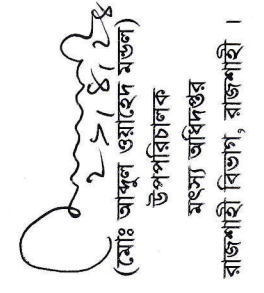 ২১।৪।২৪
(মোঃ আব্দুল ওয়াহেদ মন্ডল)
উপপরিচালক
মৎস্য অধিদপ্তর
রাজশাহী বিভাগ, রাজশাহী ।